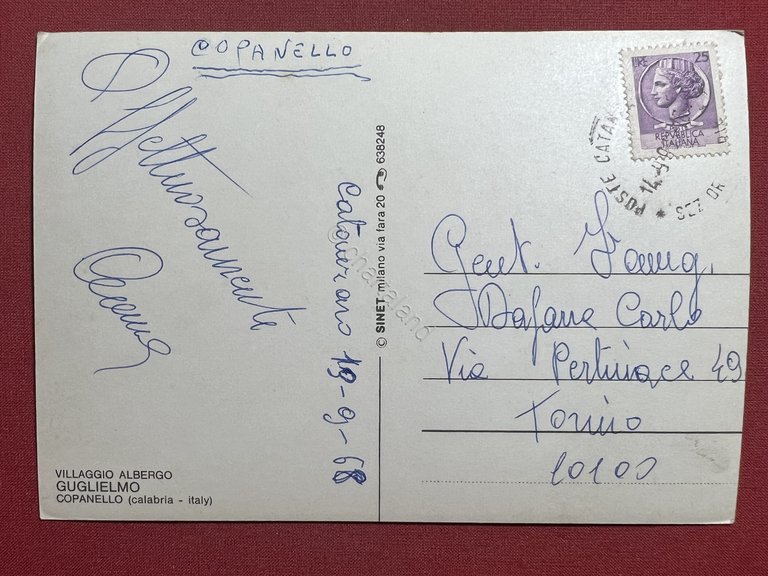 COPANELLO
Affettuosamente
Catanzaro 19-9-68
VILLAGGIO ALBERGO
GUGLIELMO
COPANELLO (calabria - italy)
© SINET milano via fara 20 638248
LIRE 25
REPUBBLICA
ITALIANA
POSTE CATAN
Gent. Famig.
Dafarra Carlo
Via Pertinace 49
Torino
10100
© chartaland